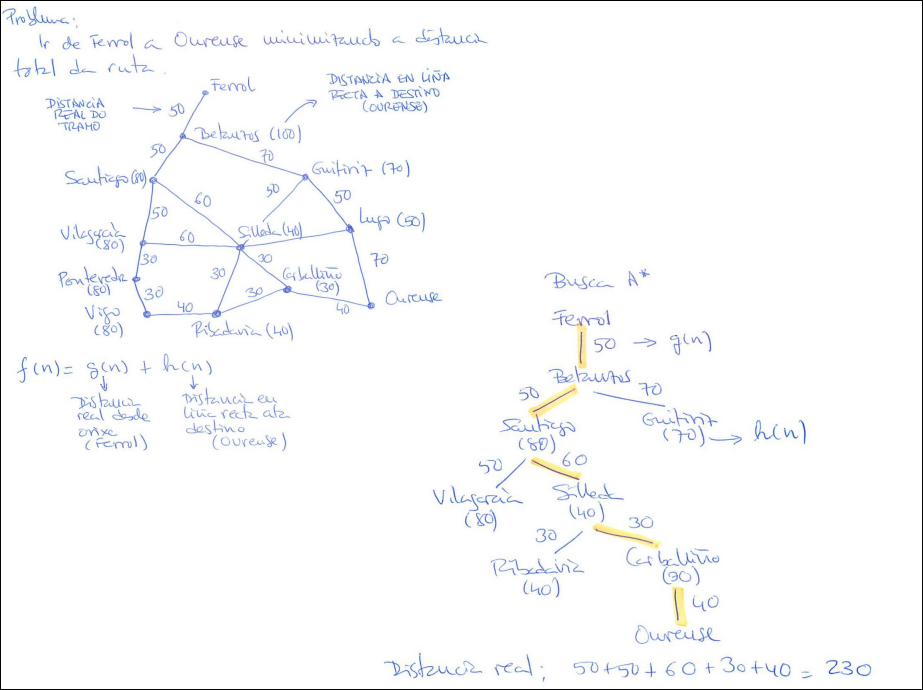 Problema:
Ir de Ferrol a Ourense minimizando a distancia
total da ruta.
Ferrol
DISTANCIA
REAL DO
TRAMO
50
DISTANCIA EN LIÑA
RECTA A DESTINO
(OURENSE)
Betanzos (100)
50
70
Santiago (80)
Guitiriz (70)
60
50
50
50
Lugo (50)
Vilagarcía
(80)
60
Silleda (40)
30
30
30
70
Pontevedra
(80)
Carballiño
(30)
30
30
Ourense
Vigo
(80)
40
40
Ribadavia (40)
f(n) = g(n) + h(n)
Distancia
real desde
orixe
(Ferrol)
Distancia en
liña recta ata
destino
(Ourense)
Busca A*
Ferrol
50 → g(n)
Betanzos
50
70
Santiago
(80)
Guitiriz
(70) → h(n)
50
60
Vilagarcía
(80)
Silleda
(40)
30
30
Ribadavia
(40)
Carballiño
(30)
40
Ourense
Distancia real: 50+50+60+30+40 = 230